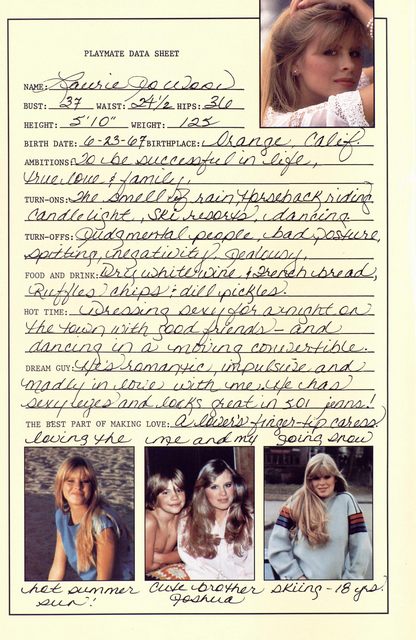 PLAYMATE DATA SHEET
NAME: Laurie Jo Wood
BUST: 37 WAIST: 24½ HIPS: 36
HEIGHT: 5'10" WEIGHT: 125
BIRTH DATE: 6-23-67 BIRTHPLACE: Orange, Calif.
AMBITIONS: To be successful in life,
true love & family.
TURN-ONS: The smell of rain, horseback riding,
candlelight, ski resorts, dancing
TURN-OFFS: Judgmental people, bad posture,
spitting, negativity, jealousy.
FOOD AND DRINK: Dry white wine & French bread,
Ruffles chips & dill pickles.
HOT TIME: Dressing sexy for a night on
the town with good friends - and
dancing in a moving convertible.
DREAM GUY: He's romantic, impulsive and
madly in love with me. He has
sexy eyes and looks great in 501 jeans!
THE BEST PART OF MAKING LOVE: A lover's finger-tip caress.
loving the me and my going snow
hot summer cute brother skiing - 18 yrs.
sun! Joshua